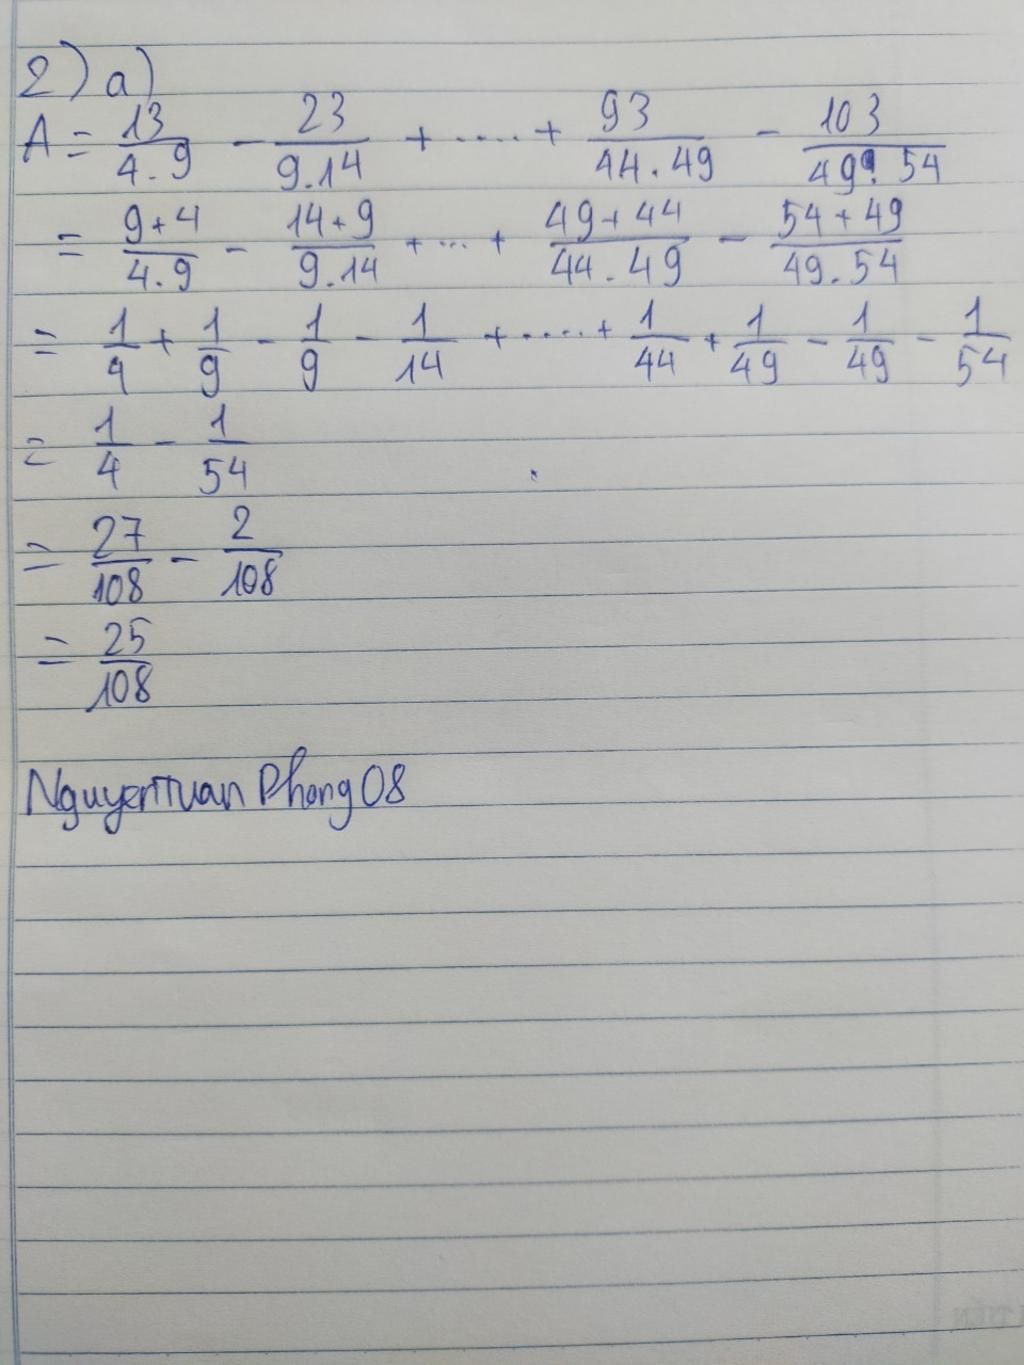 2) a)
A = 13/4.9 - 23/9.14 + ..... + 93/44.49 - 103/49.54
= 9+4/4.9 - 14+9/9.14 + ... + 49+44/44.49 - 54+49/49.54
= 1/4 + 1/9 - 1/9 - 1/14 + ..... + 1/44 + 1/49 - 1/49 - 1/54
= 1/4 - 1/54
= 27/108 - 2/108
= 25/108
NguyenTuan Phong08